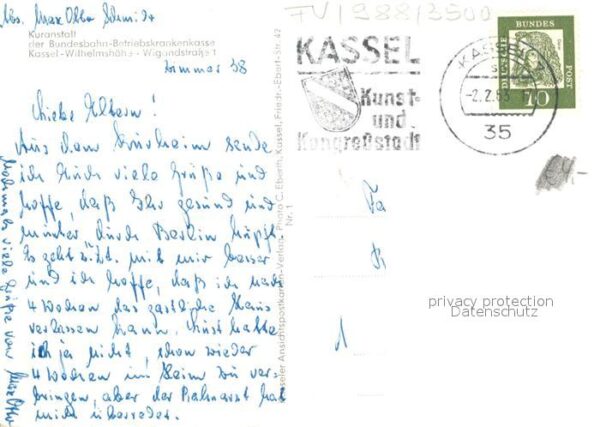 Abs. Max Otto Schmidt
Kuranstalt
der Bundesbahn-Betriebskrankenkasse
Kassel-Wilhelmshöhe - Wigandstraße 1
Zimmer 38
Liebe Eltern!
Aus dem sende
ich Euch viele Grüße und
hoffe, daß Ihr gesund und
munter durch Berlin hüpft.
Es geht mit mir besser
und ich hoffe, daß ich nach
4 Wochen das gastliche Haus
verlassen kann. Lust hatte
ich ja nicht, schon wieder
4 Wochen im Heim zu ver-
bringen, aber der Bahnarzt hat
mich überredet.
Nochmals viele Grüße von Max Otto
Kasseler Ansichtspostkarten-Verlag Franz C. Eberth, Kassel, Friedr.-Ebert-Str. 42
Nr. 1
FV/988/3500
KASSEL
Kunst-
und
Kongreßstadt
KASSEL
-2.2.63
35
DEUTSCHE BUNDESPOST
10
privacy protection
Datenschutz